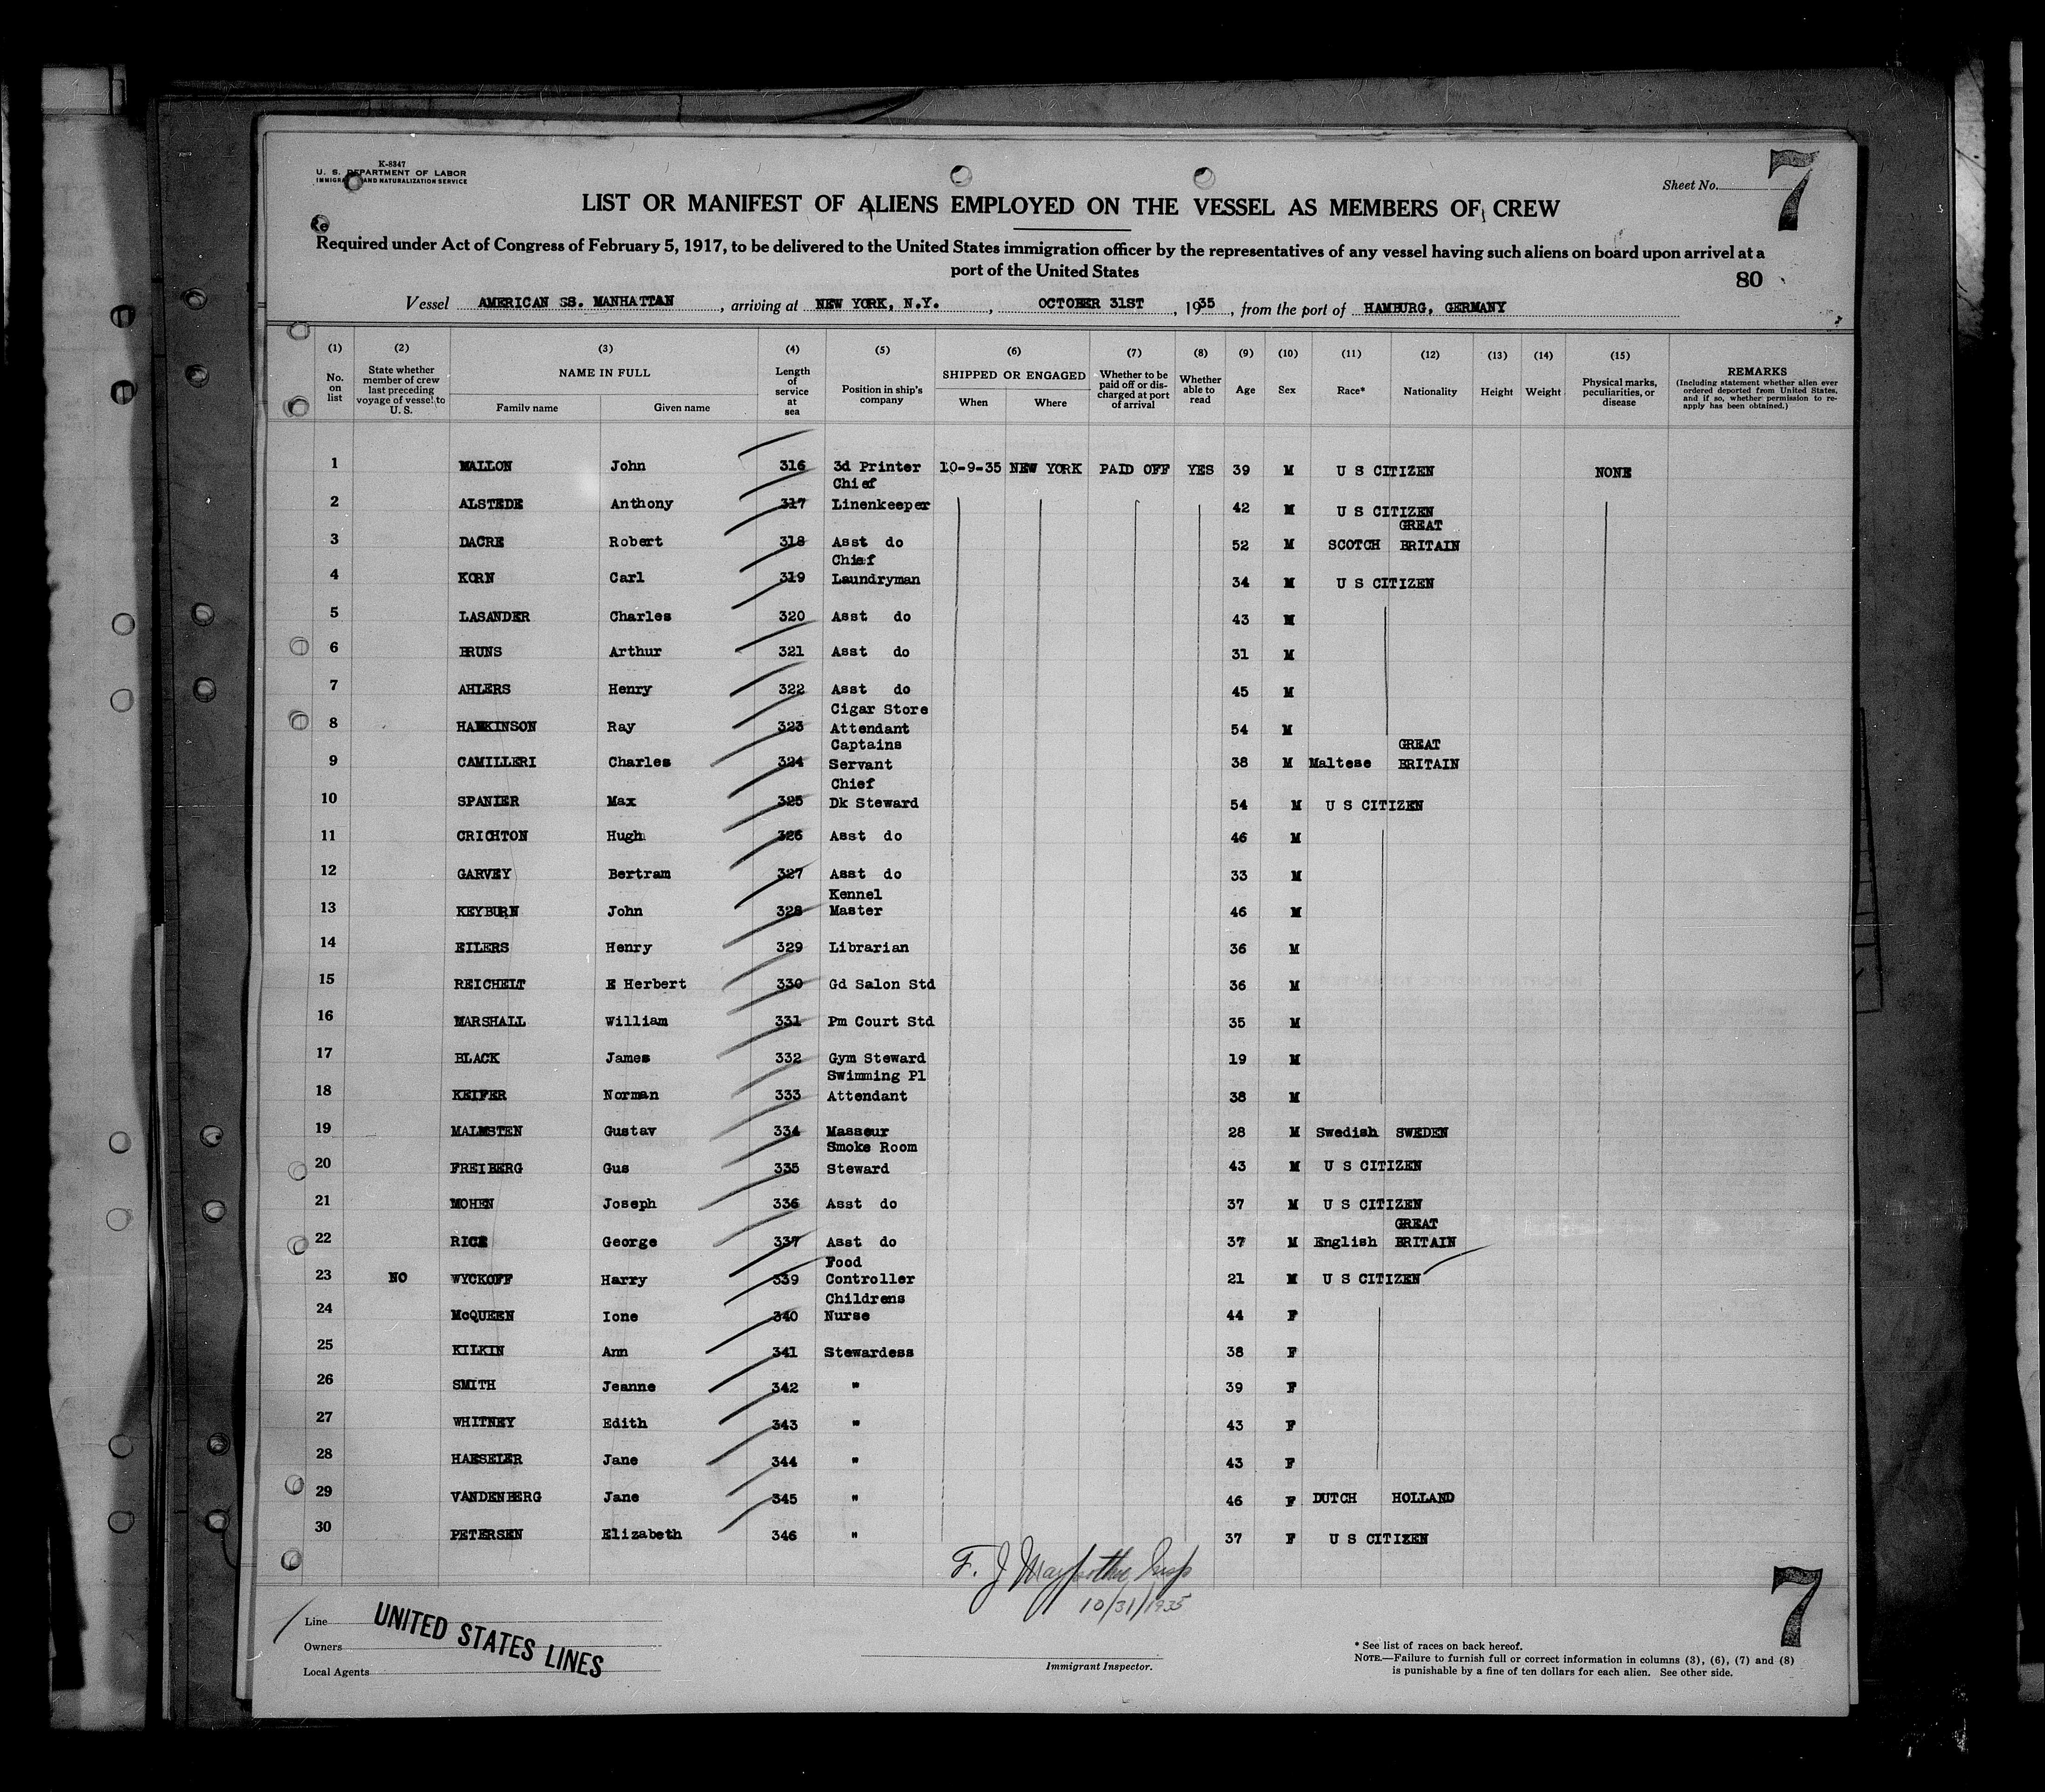 K-8347
U. S. DEPARTMENT OF LABOR
IMMIGRATION AND NATURALIZATION SERVICE
Sheet No. 7
LIST OR MANIFEST OF ALIENS EMPLOYED ON THE VESSEL AS MEMBERS OF CREW
Required under Act of Congress of February 5, 1917, to be delivered to the United States immigration officer by the representatives of any vessel having such aliens on board upon arrival at a
port of the United States
80
Vessel AMERICAN SS. MANHATTAN, arriving at NEW YORK, N.Y., OCTOBER 31ST, 1935, from the port of HAMBURG, GERMANY
(1) (2) (3) (4) (5) (6) (7) (8) (9) (10) (11) (12) (13) (14) (15)
No. on list
State whether member of crew last preceding voyage of vessel to U. S.
NAME IN FULL
Family name Given name
Length of service at sea
Position in ship's company
SHIPPED OR ENGAGED
When Where
Whether to be paid off or discharged at port of arrival
Whether able to read
Age Sex Race* Nationality Height Weight
Physical marks, peculiarities, or disease
REMARKS
(Including statement whether alien ever ordered deported from United States, and if so, whether permission to reapply has been obtained.)
1 MALLON John 316 3d Printer 10-9-35 NEW YORK PAID OFF YES 39 M U S CITIZEN NONE
2 ALSTEDE Anthony 317 Chief Linenkeeper 42 M U S CITIZEN
3 DACRE Robert 318 Asst do 52 M SCOTCH GREAT BRITAIN
4 KORN Carl 319 Chief Laundryman 34 M U S CITIZEN
5 LASANDER Charles 320 Asst do 43 M
6 BRUNS Arthur 321 Asst do 31 M
7 AHLERS Henry 322 Asst do 45 M
8 HAWKINSON Ray 323 Cigar Store Attendant 54 M
9 CAMILLERI Charles 324 Captains Servant 38 M Maltese GREAT BRITAIN
10 SPANIER Max 325 Chief Dk Steward 54 M U S CITIZEN
11 CRICHTON Hugh 326 Asst do 46 M
12 GARVEY Bertram 327 Asst do 33 M
13 KEYBURN John 328 Kennel Master 46 M
14 EILERS Henry 329 Librarian 36 M
15 REICHELT E Herbert 330 Gd Salon Std 36 M
16 MARSHALL William 331 Pm Court Std 35 M
17 BLACK James 332 Gym Steward 19 M
18 KEIFER Norman 333 Swimming Pl Attendant 38 M
19 MALMSTEN Gustav 334 Masseur 28 M Swedish SWEDEN
20 FREIBERG Gus 335 Smoke Room Steward 43 M U S CITIZEN
21 MOHEN Joseph 336 Asst do 37 M U S CITIZEN
22 RICE George 337 Asst do 37 M English GREAT BRITAIN
23 NO WYCKOFF Harry 339 Food Controller 21 M U S CITIZEN
24 McQUEEN Ione 340 Childrens Nurse 44 F
25 KILKIN Ann 341 Stewardess 38 F
26 SMITH Jeanne 342 " 39 F
27 WHITNEY Edith 343 " 43 F
28 HAESELER Jane 344 " 43 F
29 VANDENBERG Jane 345 " 46 F DUTCH HOLLAND
30 PETERSEN Elizabeth 346 " 37 F U S CITIZEN
F. J.
10/31/1935
Line
Owners
Local Agents
UNITED STATES LINES
Immigrant Inspector.
7
* See list of races on back hereof.
NOTE.—Failure to furnish full or correct information in columns (3), (6), (7) and (8)
is punishable by a fine of ten dollars for each alien. See other side.